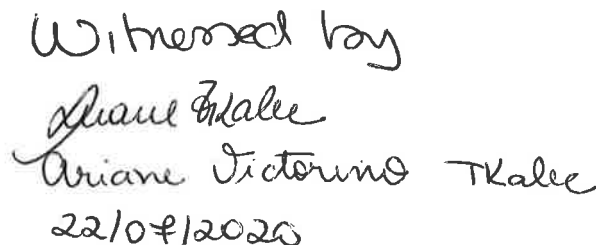 Witnessed by
Ariane Tkalec
Ariane Victorino Tkalec
22/07/2020